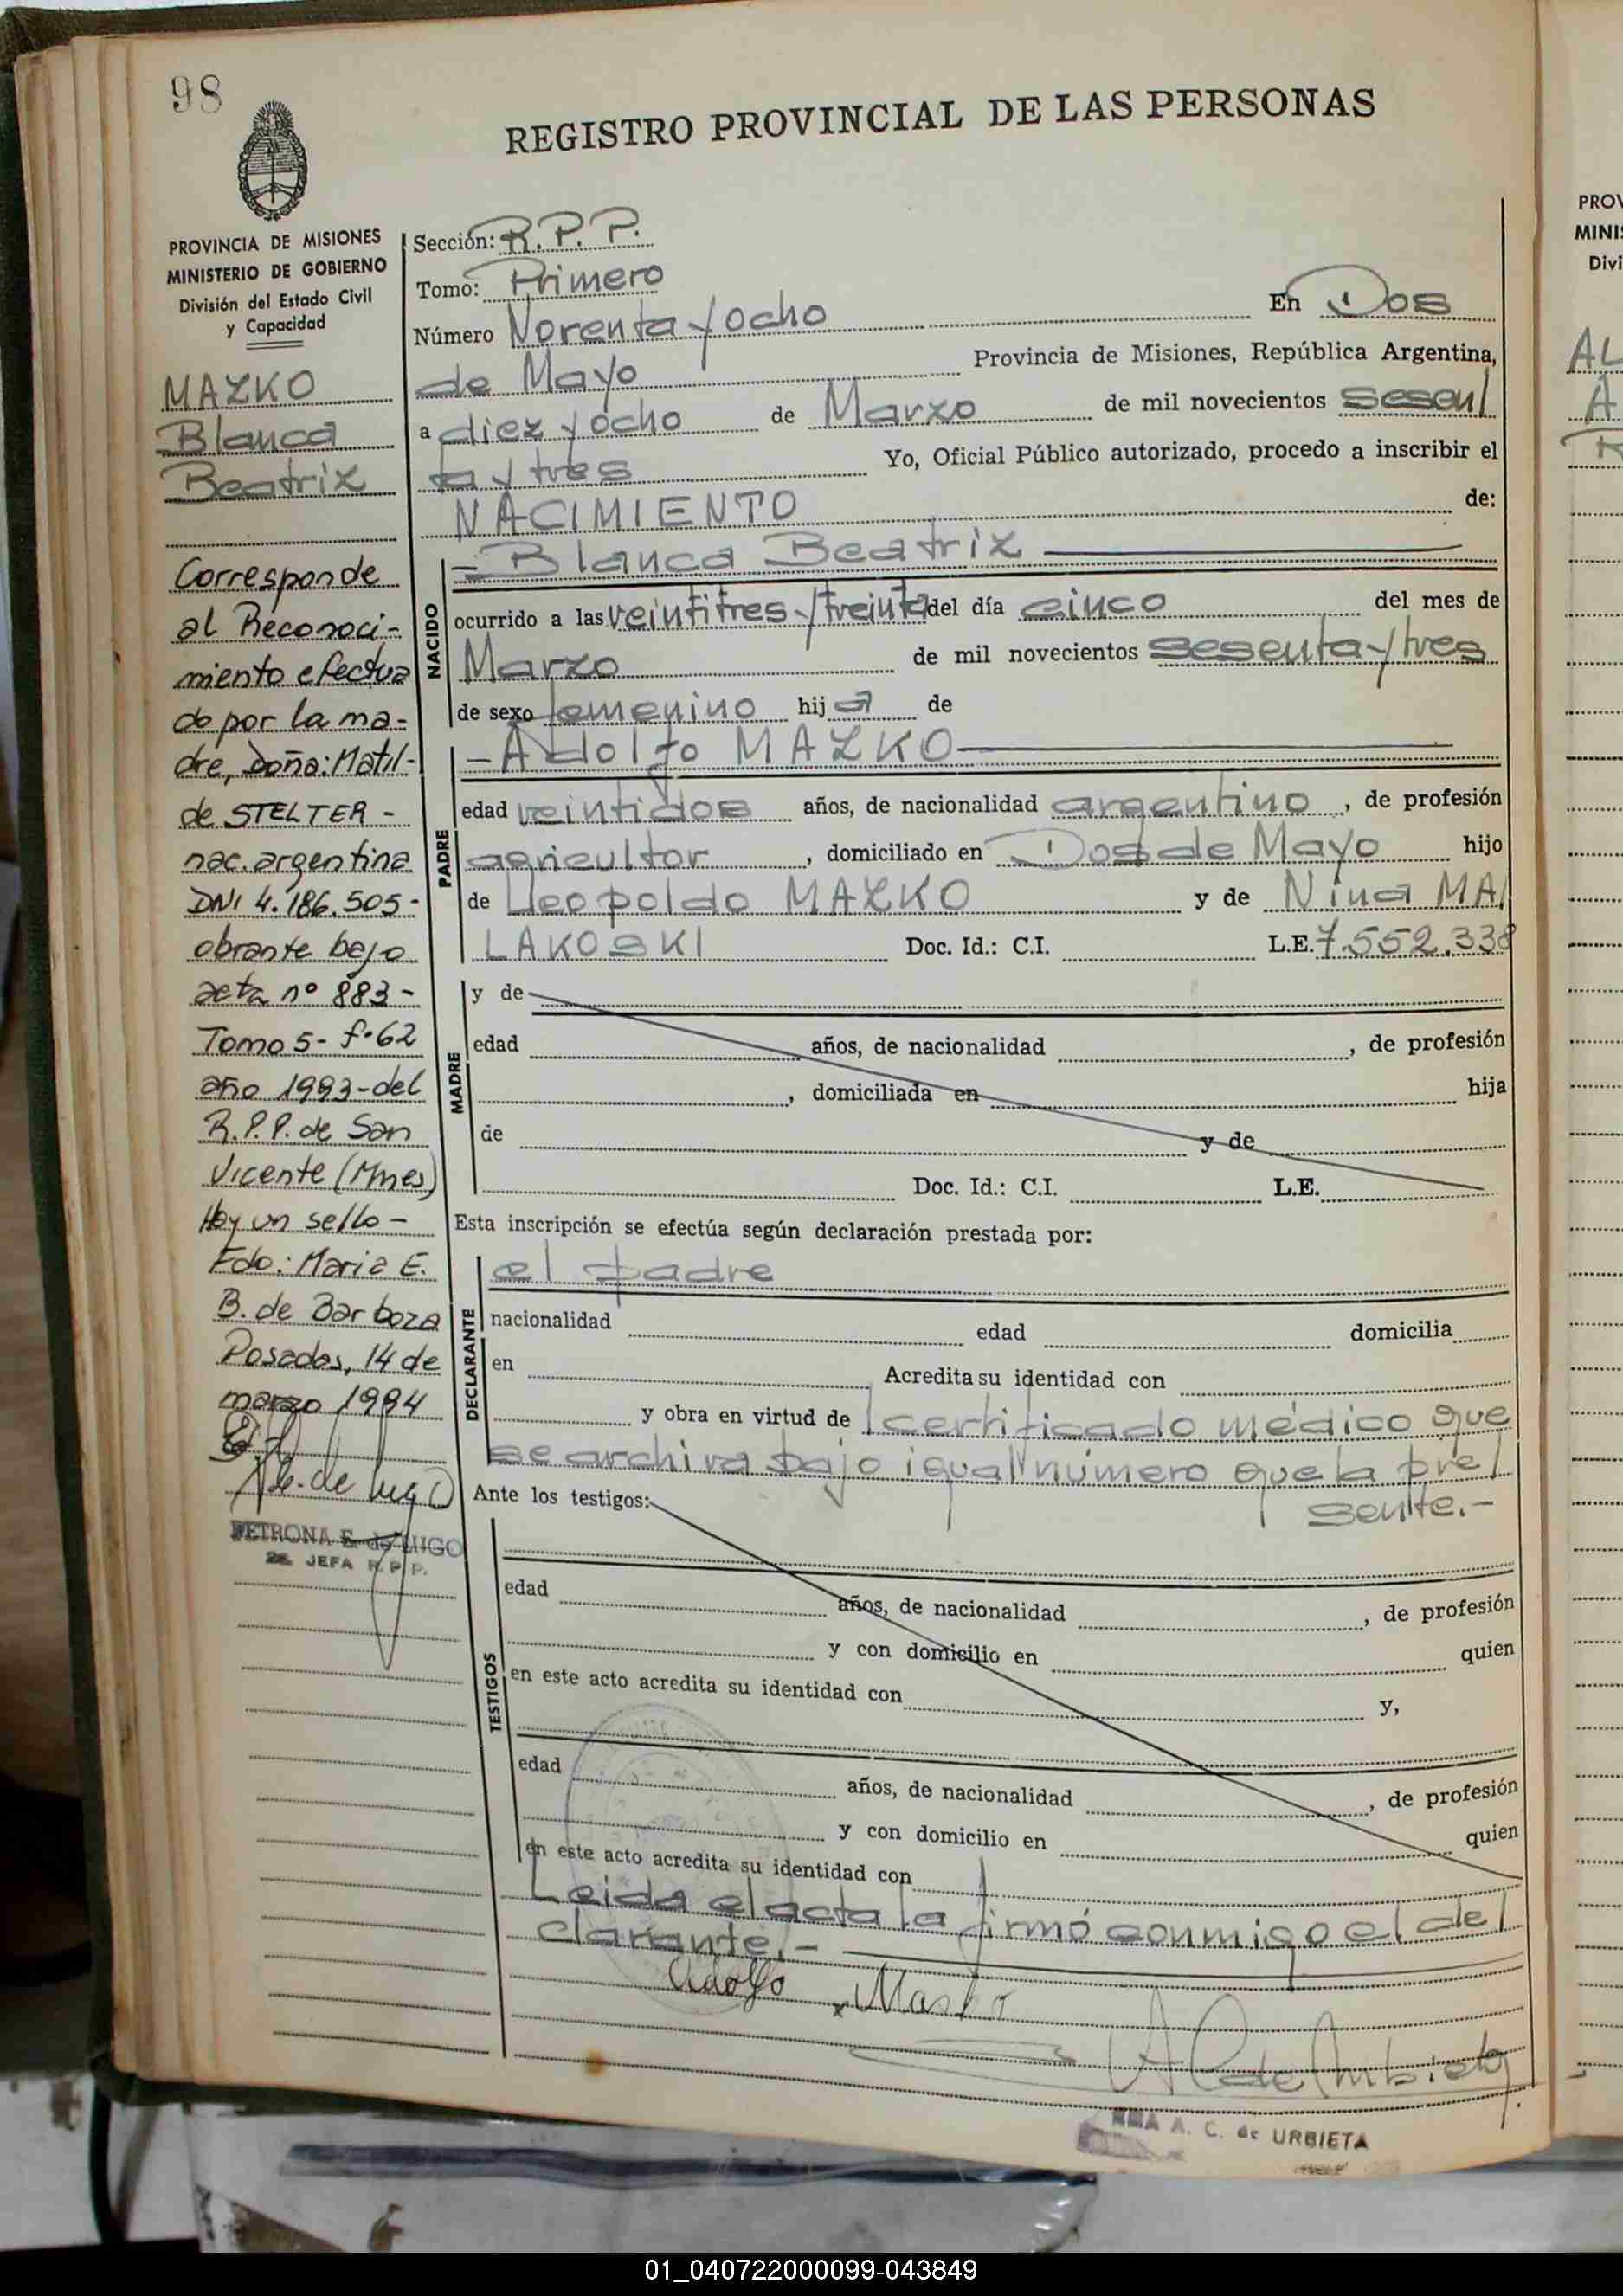 98
REGISTRO PROVINCIAL DE LAS PERSONAS
PROVINCIA DE MISIONES
MINISTERIO DE GOBIERNO
División del Estado Civil
y Capacidad
MAZKO
Blanca
Beatriz
Corresponde
al Reconoci-
miento efectua
do por la ma-
dre, Doña: Matil-
de STELTER -
nac. argentina
DNI 4.186.505-
obrante bajo
acta nº 883-
Tomo 5- f. 62
año 1993-del
R.P.P. de San
Vicente (Mnes)
Hay un sello -
Fdo: Maria E.
B. de Barboza
Posadas, 14 de
marzo 1994
PETRONA E. de LUGO
JEFA R.P.P.
Sección: R.P.P.
Tomo: Primero
Número Noventa y ocho En Dos
de Mayo Provincia de Misiones, República Argentina,
a diez y ocho de Marzo de mil novecientos sesen/
ta y tres Yo, Oficial Público autorizado, procedo a inscribir el
NACIMIENTO de:
NACIDO
- Blanca Beatriz
ocurrido a las veintitres y treinta del día cinco del mes de
Marzo de mil novecientos sesenta y tres
de sexo femenino hija de
PADRE
- Adolfo MAZKO
edad veintidos años, de nacionalidad argentino, de profesión
agricultor, domiciliado en Dos de Mayo hijo
de Leopoldo MAZKO y de Nina MA/
LAKOSKI Doc. Id.: C.I. L.E. 7.552.338
MADRE
y de
edad años, de nacionalidad , de profesión
, domiciliada en hija
de y de
Doc. Id.: C.I. L.E.
Esta inscripción se efectúa según declaración prestada por:
DECLARANTE
el padre
nacionalidad edad domicilia
en Acredita su identidad con
y obra en virtud de certificado médico que
se archiva bajo igual número que la pre/
sente.-
Ante los testigos:
TESTIGOS
edad años, de nacionalidad , de profesión
y con domicilio en quien
en este acto acredita su identidad con y,
edad años, de nacionalidad , de profesión
y con domicilio en quien
en este acto acredita su identidad con
Leida el acta la firmó conmigo el de/
clarante.-
Adolfo Masko
A. C. de URBIETA
PROV
MINIS
Divi
AL
A
01_040722000099-043849